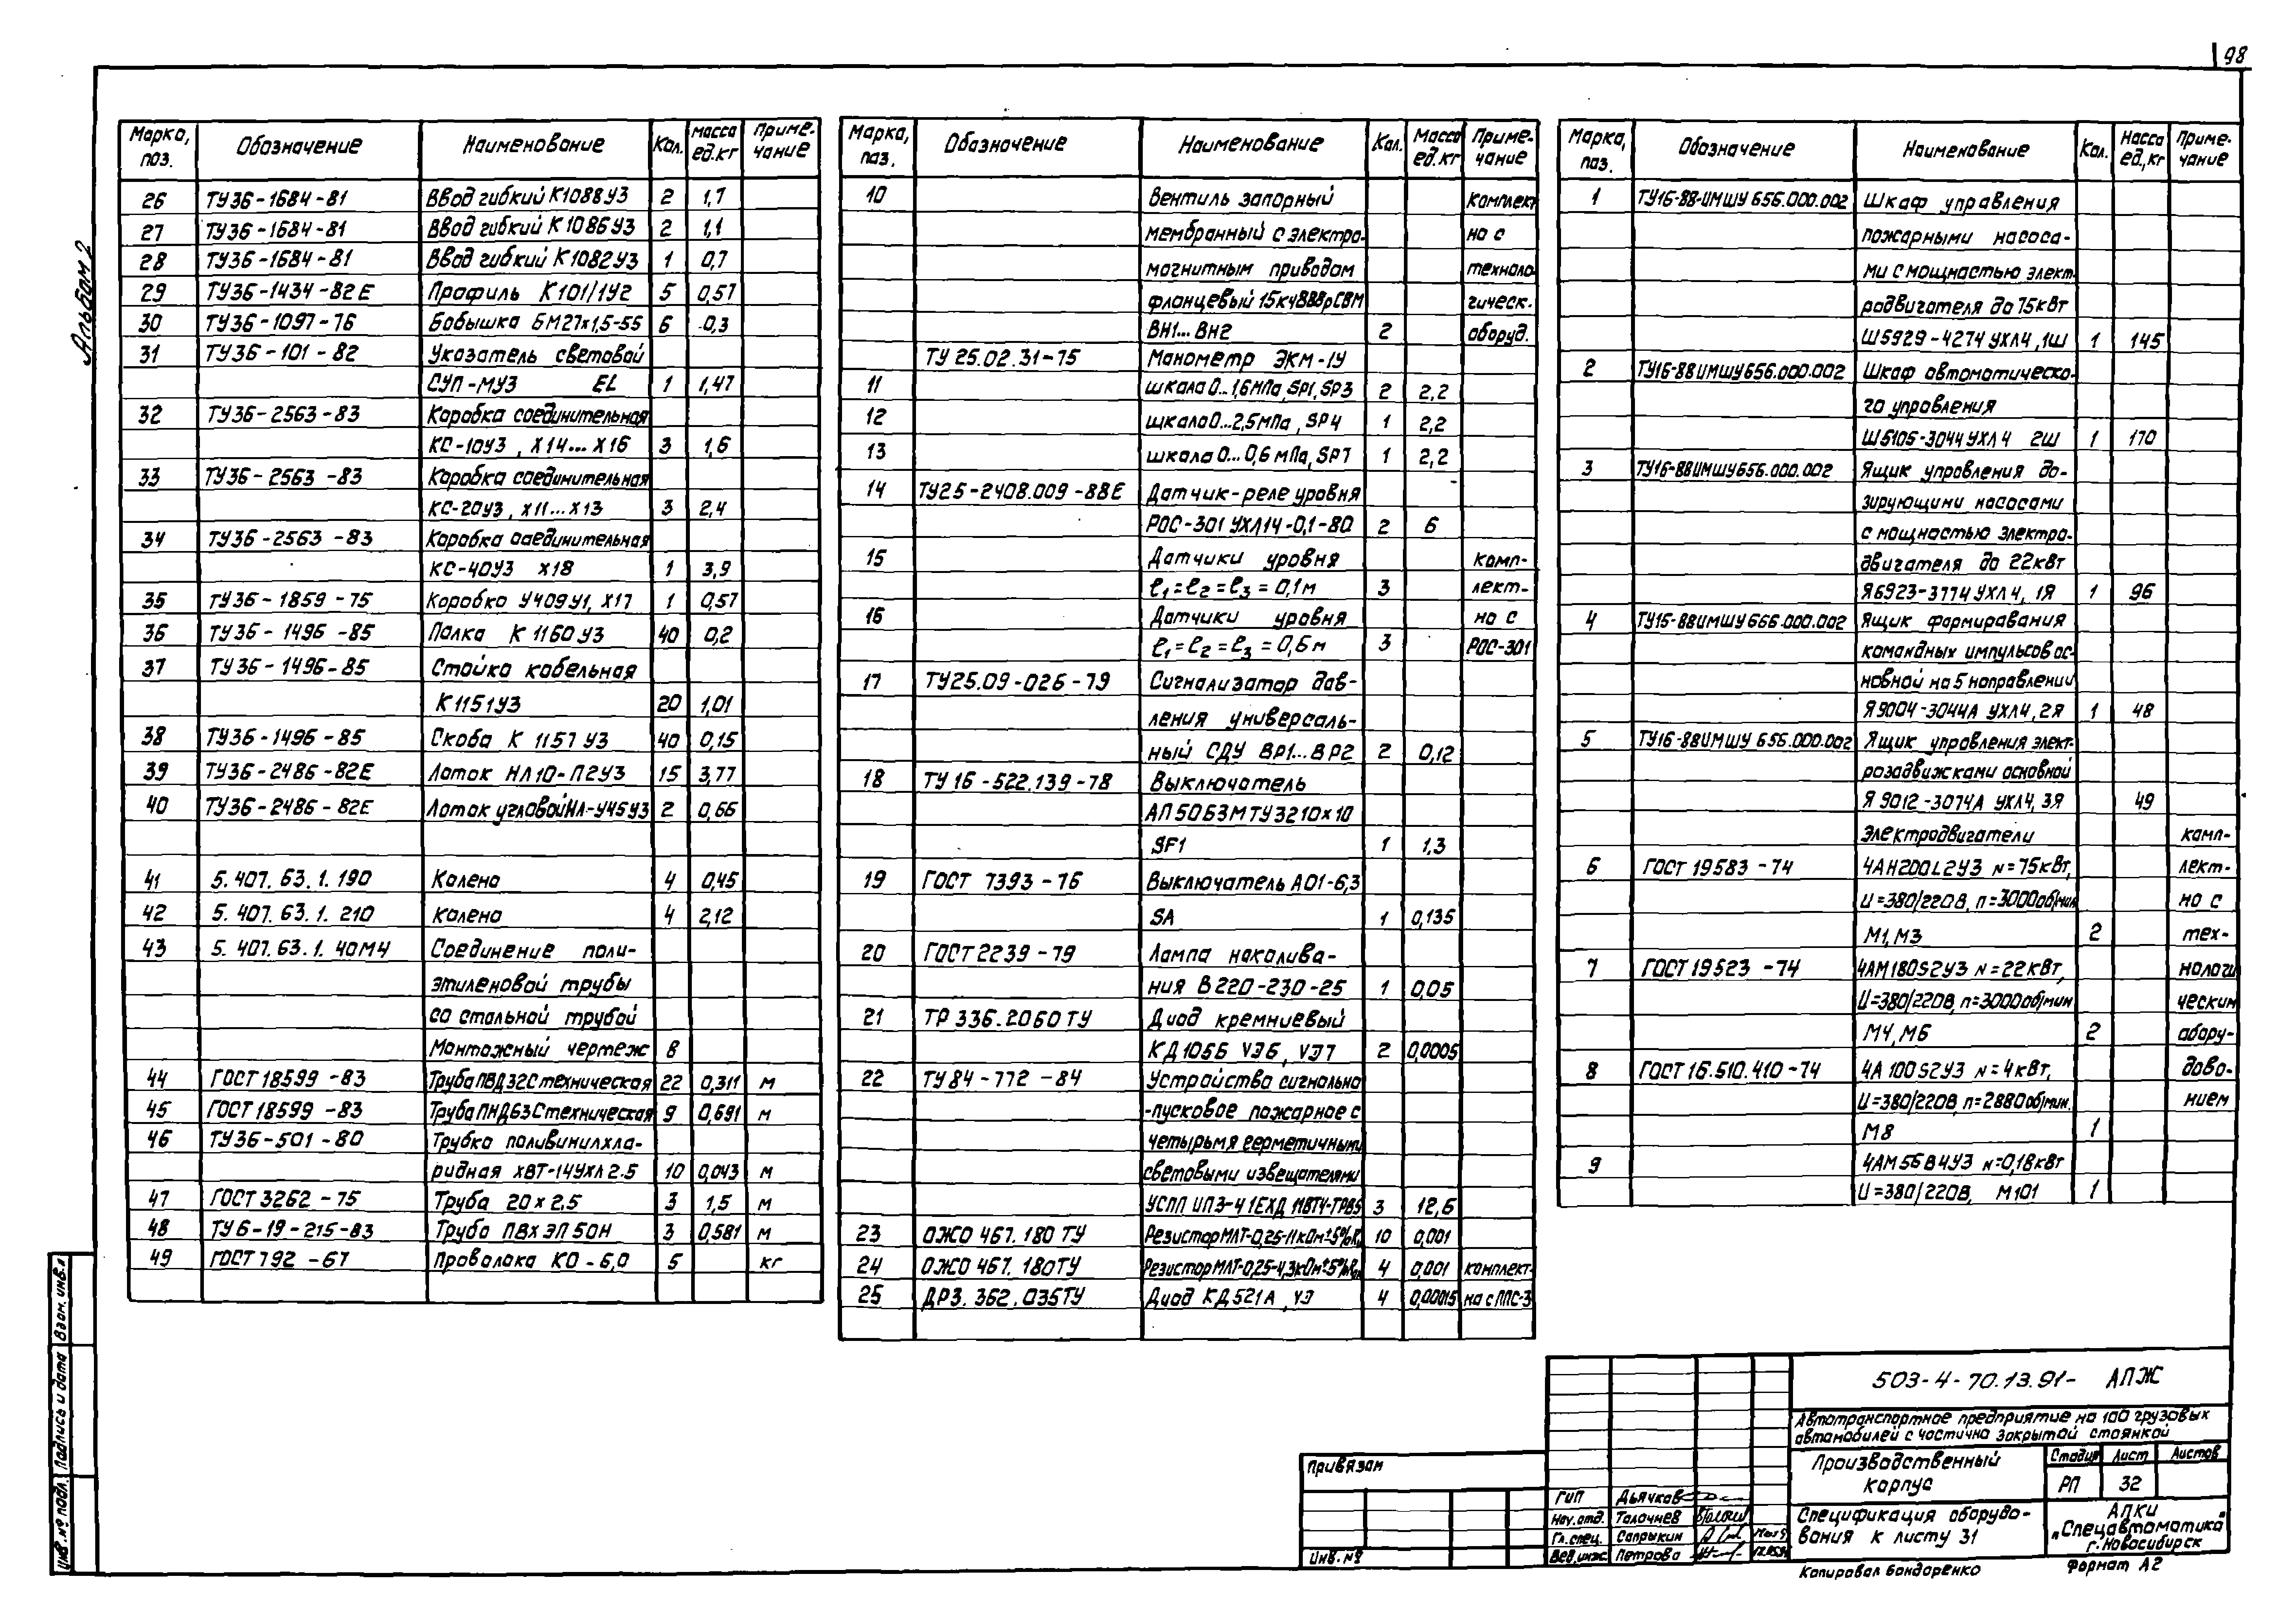 98
Альбом 2
Марка, поз. Обозначение Наименование Кол. Масса ед.кг Приме-чание
26 ТУ36-1684-81 Ввод гибкий К1088У3 2 1,7
27 ТУ36-1684-81 Ввод гибкий К1086У3 2 1,1
28 ТУ36-1684-81 Ввод гибкий К1082У3 1 0,7
29 ТУ36-1434-82Е Профиль К101/1У2 5 0,57
30 ТУ36-1097-76 Бобышка БМ27х1,5-55 6 0,3
31 ТУ36-101-82 Указатель световой
СУП-МУ3 EL 1 1,47
32 ТУ36-2563-83 Коробка соединительная
КС-10У3, Х14...Х16 3 1,6
33 ТУ36-2563-83 Коробка соединительная
КС-20У3, Х11...Х13 3 2,4
34 ТУ36-2563-83 Коробка соединительная
КС-40У3 Х18 1 3,9
35 ТУ36-1859-75 Коробка У409У1, Х17 1 0,57
36 ТУ36-1496-85 Полка К1160У3 40 0,2
37 ТУ36-1496-85 Стойка кабельная
К1151У3 20 1,01
38 ТУ36-1496-85 Скоба К 1157 У3 40 0,15
39 ТУ36-2486-82Е Лоток НЛ10-П2У3 15 3,77
40 ТУ36-2486-82Е Лоток угловой НЛ-У45У3 2 0,66
41 5.407.63.1.190 Колено 4 0,45
42 5.407.63.1.210 Колено 4 2,12
43 5.407.63.1.40М4 Соединение поли-
этиленовой трубы
со стальной трубой
Монтажный чертеж 8
44 ГОСТ 18599-83 Труба ПВД32С техническая 22 0,311 м
45 ГОСТ 18599-83 Труба ПНД63С техническая 9 0,691 м
46 ТУ36-501-80 Трубка поливинилхло-
ридная ХВТ-14УХЛ2.5 10 0,043 м
47 ГОСТ 3262-75 Труба 20х2,5 3 1,5 м
48 ТУ6-19-215-83 Труба ПВХ ЭП 50Н 3 0,581 м
49 ГОСТ 792-67 Проволока КО-6,0 5 кг
Марка, поз. Обозначение Наименование Кол. Масса ед.кг Приме-чание
10 Вентиль запорный комплект
мембранный с электро- но с
магнитным приводом техноло
фланцевый 15кч888рСВМ гическ.
ВН1...ВН2 2 оборуд.
ТУ 25.02.31-75 Манометр ЭКМ-1У
11 шкала 0...1,6МПа, SP1, SP3 2 2,2
12 шкала 0...2,5МПа, SP4 1 2,2
13 шкала 0...0,6 МПа, SP7 1 2,2
14 ТУ25-2408.009-88Е Датчик-реле уровня
РОС-301 УХЛ14-0,1-80 2 6
15 Датчики уровня комп-
ℓ1=ℓ2=ℓ3=0,1м 3 лект-
16 Датчики уровня но с
ℓ1=ℓ2=ℓ3=0,6м 3 РОС-301
17 ТУ25.09-026-79 Сигнализатор дав-
ления универсаль-
ный СДУ ВР1...ВР2 2 0,12
18 ТУ16-522.139-78 Выключатель
АП50БЗМТУ3210х10
SF1 1 1,3
19 ГОСТ 7393-76 Выключатель А01-6,3
SA 1 0,135
20 ГОСТ 2239-79 Лампа накалива-
ния В220-230-25 1 0,05
21 ТР 336.2060ТУ Диод кремниевый
КД105Б VЭ6, VЭ7 2 0,0005
22 ТУ84-772-84 Устройства сигнально
-пусковое пожарное с
четырьмя герметичными
световыми извещателями
УСПП 3 12,6
23 ОЖО 467.180 ТУ Резистор МЛТ-0,25-11кОм±5% 10 0,001
24 ОЖО 467.180ТУ Резистор МЛТ-0,25-4,3кОм±5% 4 0,001 комплект-
25 ДР3.362.035ТУ Диод КД521А, VЭ 4 0,00015 на с ППС-3
Марка, поз. Обозначение Наименование Кол. Масса ед,кг Приме-чание
1 ТУ16-88-ИМШУ 656.000.002 Шкаф управления
пожарными насоса-
ми с мощностью элект-
родвигателя до 75кВт
Ш5929-4274 УХЛ4, 1Ш 1 145
2 ТУ16-88ИМШУ656.000.002 Шкаф автоматическо-
го управления
Ш5105-3044УХЛ4 2Ш 1 170
3 ТУ16-88ИМШУ656.000.002 Ящик управления до-
зирующими насосами
с мощностью электро-
двигателя до 22кВт
Я6923-3774УХЛ4, 1Я 1 96
4 ТУ16-88ИМШУ656.000.002 Ящик формирования
командных импульсов ос-
новной на 5 направлений
Я9004-3044А УХЛ4, 2Я 1 48
5 ТУ16-88ИМШУ 656.000.002 Ящик управления элект-
розадвижками основной
Я9012-3074А УХЛ4, 3Я 49
Электродвигатели комп-
6 ГОСТ 19583-74 4АН200L2У3 N=75кВт, лект-
U=380/220В, n=3000об/мин но с
М1, М3 2 тех-
7 ГОСТ 19523-74 4АМ180S2У3 N=22кВт, нологи
U=380/220В, n=3000об/мин ческим
М4, М6 2 обору-
8 ГОСТ 16.510.410-74 4А100S2У3 N=4кВт, дово-
U=380/220В, n=2880об/мин. нием
М8 1
9 4АМ56В4У3 N=0,18кВт
U=380/220В, М101 1
503-4-70.13.91- АПЖ
Автотранспортное предприятие на 100 грузовых
автомобилей с частично закрытой стоянкой
Производственный корпус
Стадия Лист Листов
РП 32
Спецификация оборудо-
вания к листу 31
АПКИ
„Спецавтоматика"
г.Новосибирск
Привязан
Инв.№
ГИП Дьячков
Нач.отд. Толочнев
Гл.спец. Сапрыкин
Вед.инж. Петрова
Копировал Бондаренко
Формат А2
Инв.№ подл. Подпись и дата Взам.инв.№